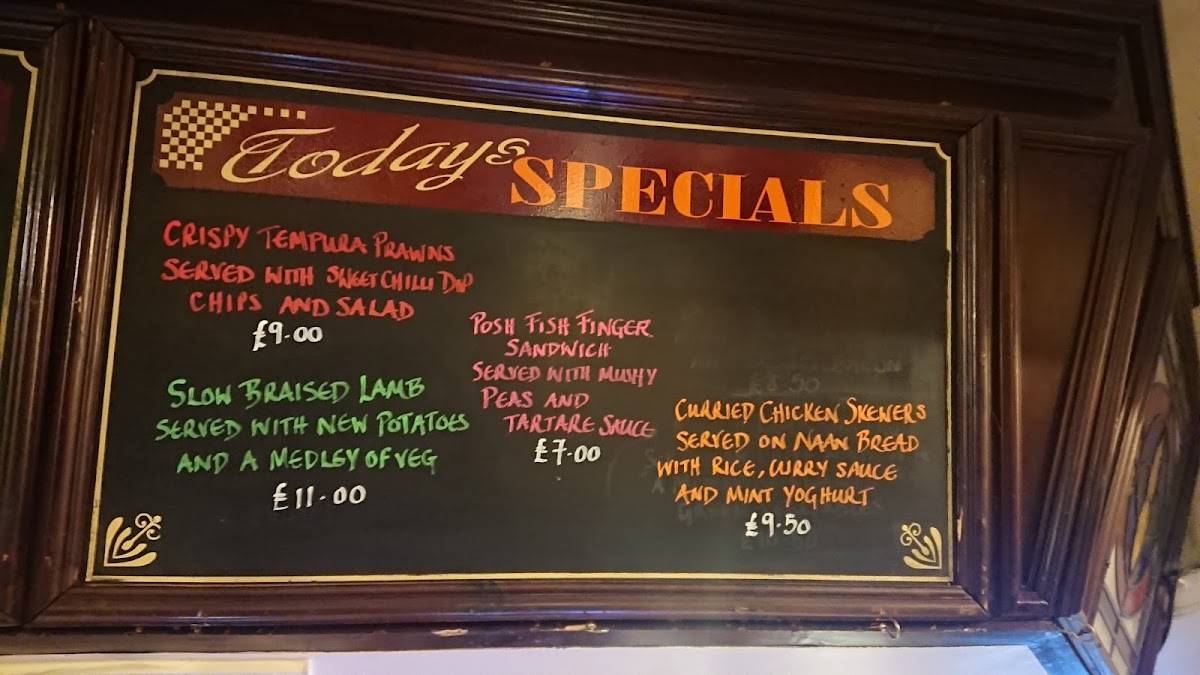 Todays SPECIALS
CRISPY TEMPURA PRAWNS
SERVED WITH SWEET CHILLI DIP
CHIPS AND SALAD
£9.00
SLOW BRAISED LAMB
SERVED WITH NEW POTATOES
AND A MEDLEY OF VEG
£11.00
POSH FISH FINGER
SANDWICH
SERVED WITH MUSHY
PEAS AND
TARTARE SAUCE
£7.00
£8.50
CURRIED CHICKEN SKEWERS
SERVED ON NAAN BREAD
WITH RICE, CURRY SAUCE
AND MINT YOGHURT
£9.50